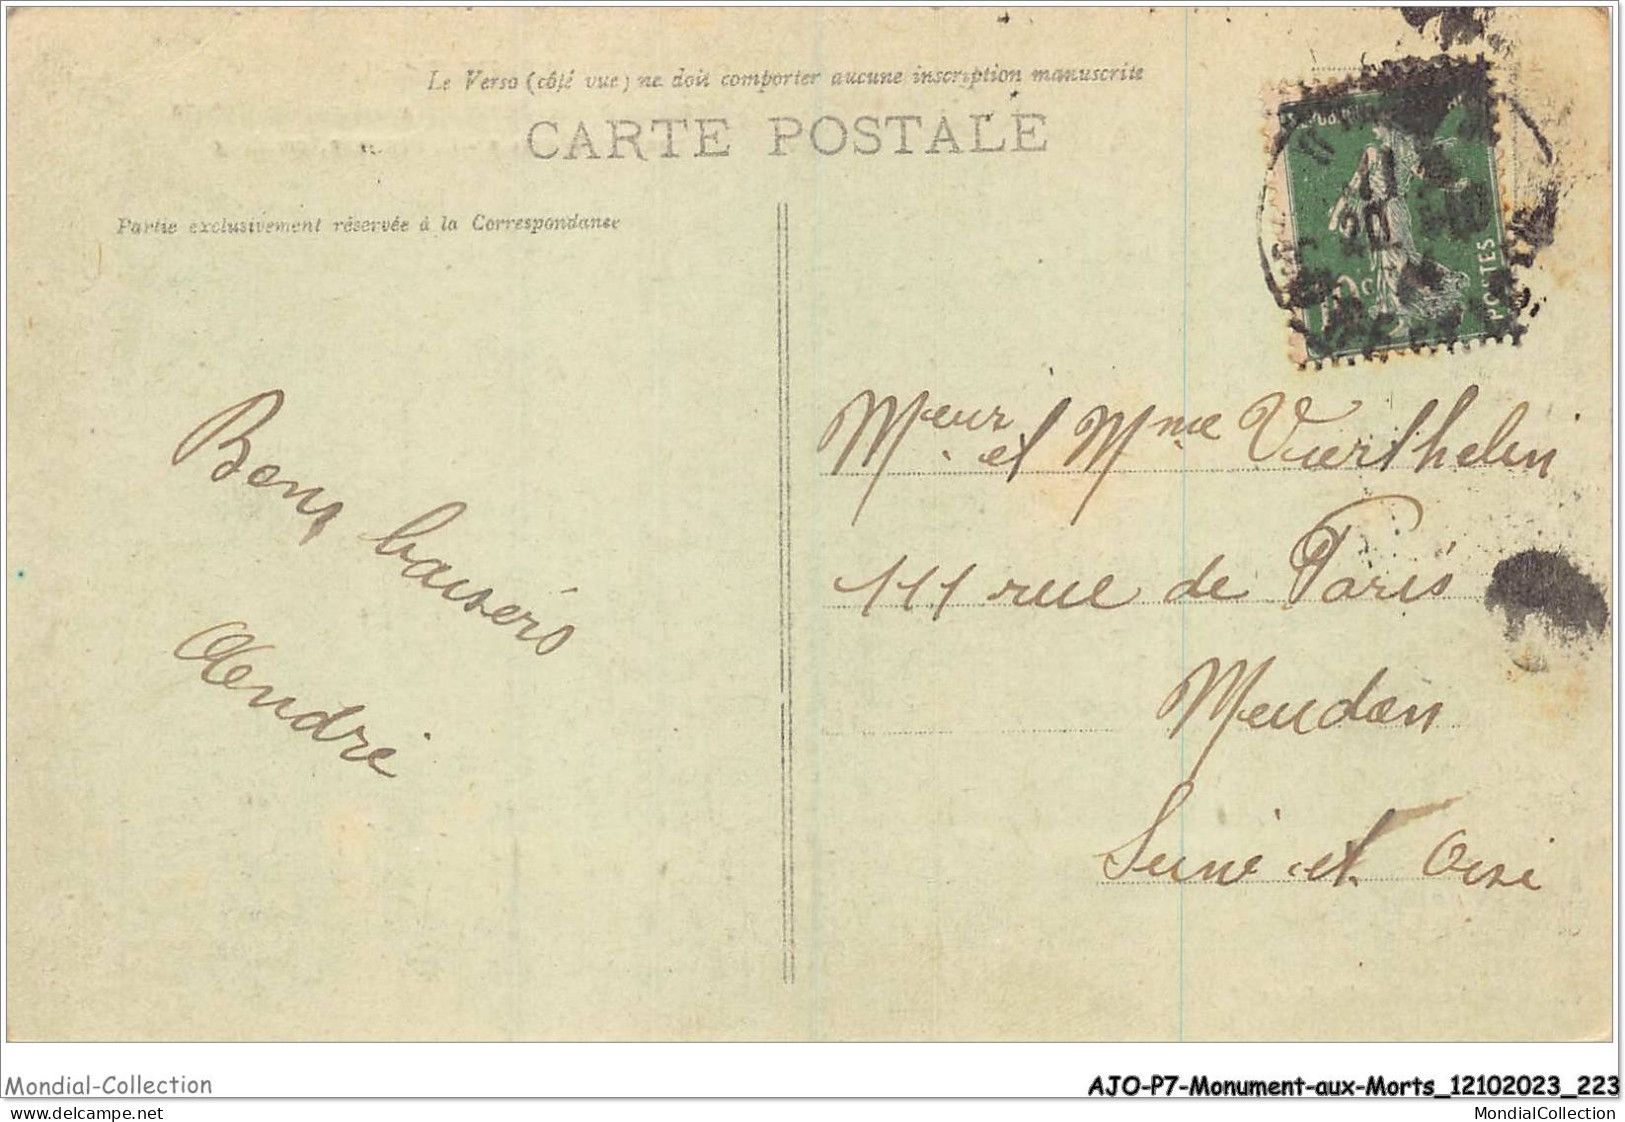 Le Verso (côté vue) ne doit comporter aucune inscription manuscrite
CARTE POSTALE
Partie exclusivement réservée à la Correspondanse
11
20
POSTES
10c
Bons baisers
André
Meur et Mme Vuerthelin
111 rue de Paris
Meudon
Seine et Oise
Mondial-Collection
AJO-P7-Monument-aux-Morts_12102023_223
delcampe.net
MondialCollection